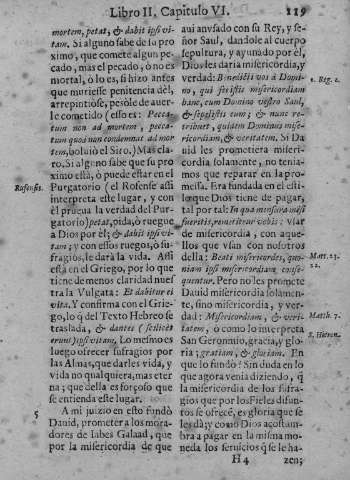 Libro II. Capitulo VI. 119
mortem, petat, & dabit ipsi vi-
tam. Si alguno sabe de su pro
ximo, que comete algun pe-
cado, mas el pecado, ò no es
mortal, ò lo es, si hizo antes
que muriesse penitencia dèl,
arrepintiòse, pesòle de auer-
le cometido (esso es: Pecca-
tum non ad mortem, pecca-
tum quod non condemnat ad mor
tem, boluiò el Siro.) Mas cla-
ro. Si alguno sabe que su pro
ximo està, ò puede estar en el
Rofensis. Purgatorio (el Rofense assi
interpreta este lugar, y con
èl prueua la verdad del Pur-
gatorio) petat, pida, ò ruegue
a Dios por èl; & dabit ipsi vi-
tam; y con essos ruegos, ò su-
fragios, le darà la vida. Assi
està en el Griego, por lo que
tiene de menos claridad nues
tra la Vulgata: Et dabitur ei
vita. Y confirma con el Grie-
go, lo q̃ del Texto Hebreo se
traslada, & dantes (scilicèt
erunt) ipsi vitam. Lo mesmo es
luego ofrecer sufragios por
las Almas, que darles vida, y
vida no qualquiera, mas eter
na; que della es forçoso que
se entienda este lugar.
5 A mi juizio en esto fundò
Dauid, prometer a los mora-
dores de Iabes Galaad, que
por la misericordia de que
aui anvsado con su Rey, y se-
ñor Saul, dandole al cuerpo
sepultura, y ayunado por èl,
Dios les daria misericordia, y
verdad: Benedicti vos à Domi- 2. Reg. 2.
no, qui fecistis misericordiam
hanc, cum Domino vestro Saul,
& sepelistis eum; & nunc re-
tribuet, quidem Dominus mise-
ricordiam, & veritatem. Si Da
uid les prometiera miseri-
cordia solamente, no tenia-
mos que reparar en la pro-
messa. Era fundada en el esti-
lo que Dios tiene de pagar,
tal por tal: In qua mensura mēsi
fueritis, remetietur vobis: Vsar
de misericordia, con aque-
llos que vsan con nosotros
della: Beati misericordes, quo- Matt. 23.
niam ipsi misericordiam conse- 22.
quentur. Pero no les promete
Dauid misericordia solamen-
te, sino misericordia, y ver-
dad: Misericordiam, & veri- Matth. 7.
tatem, ò como lo interpreta
San Geronimo, gracia, y glo S. Hieron.
ria; gratiam, & gloriam. En
que lo fundò? Sin duda en lo
que agora venia diziendo, q̃
la misericordia de los sufra-
gios que por los Fieles difun-
tos se ofrecē, es gloria que se
les dà; y como Dios acostum-
bra a pagar en la misma mo-
neda los seruicios q̃ se le ha-
H 4 zen;